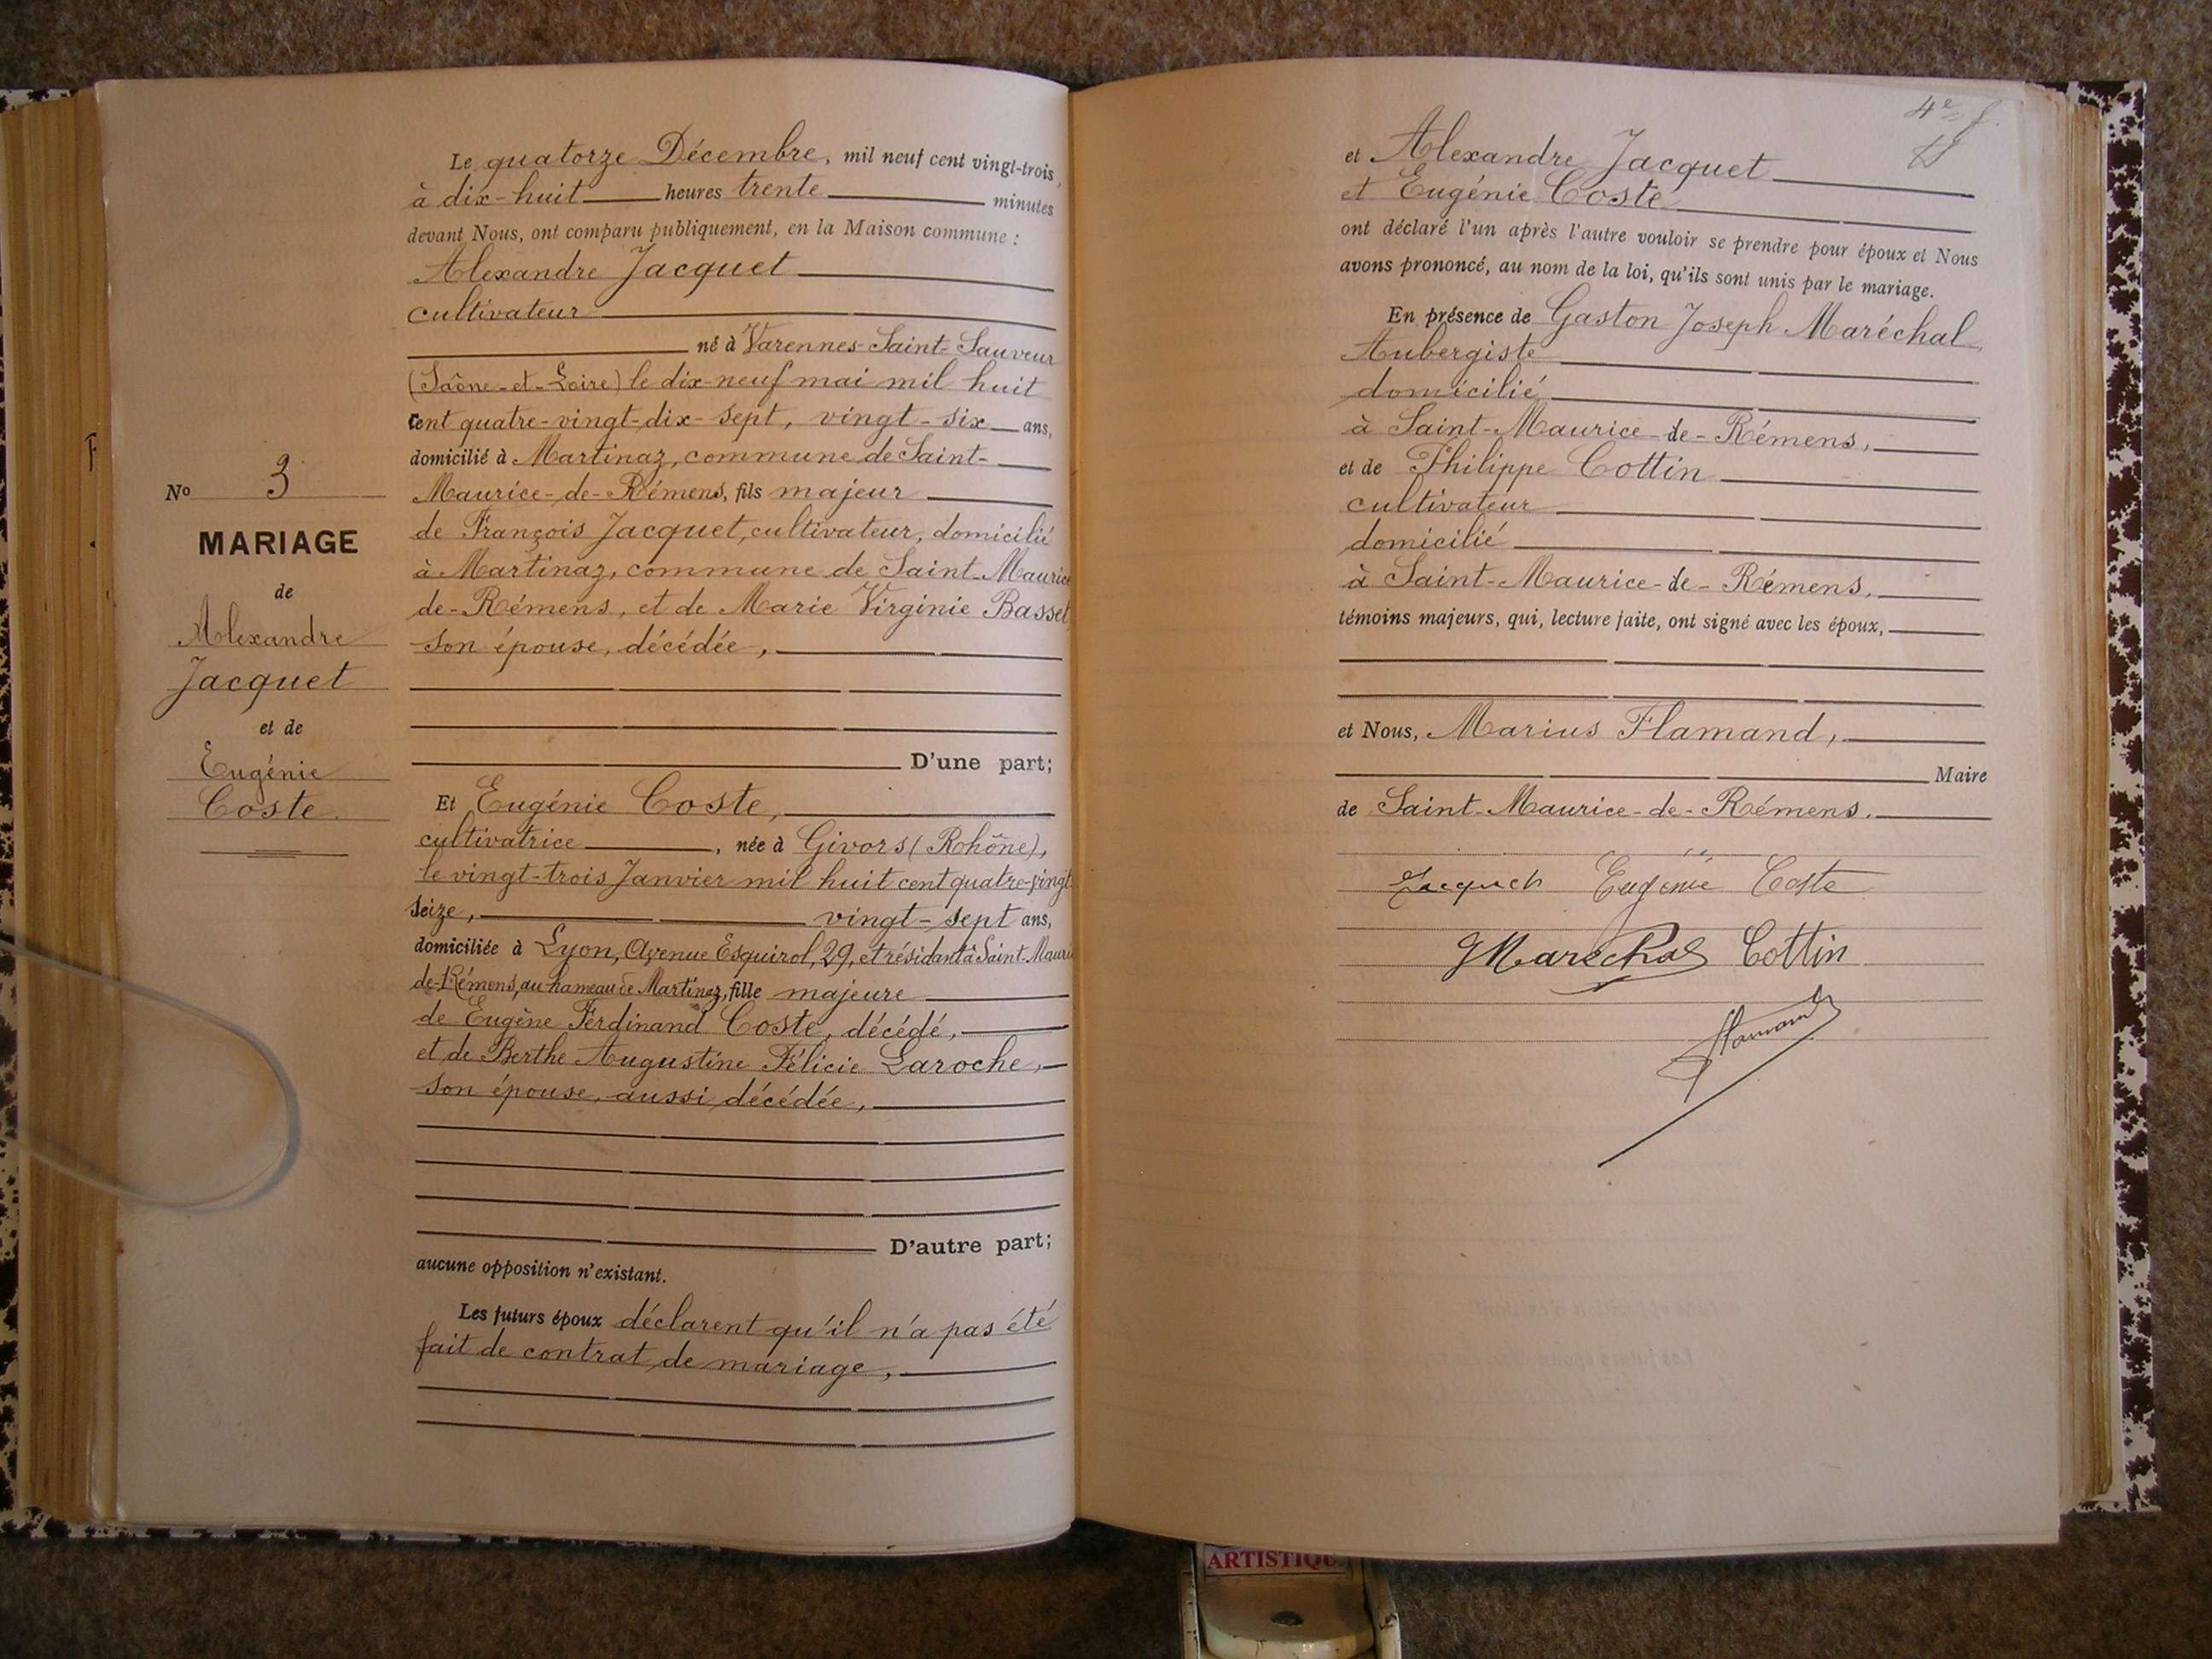 Le quatorze Décembre, mil neuf cent vingt-trois,
à dix-huit heures trente minutes
devant Nous, ont comparu publiquement, en la Maison commune :
Alexandre Jacquet
cultivateur
né à Varennes-Saint-Sauveur
(Saône-et-Loire) le dix-neuf mai mil huit
cent quatre-vingt-dix-sept, vingt-six ans,
domicilié à Martinaz, commune de Saint-
Maurice-de-Rémens, fils majeur
de François Jacquet, cultivateur, domicilié
à Martinaz, commune de Saint-Maurice
de-Rémens, et de Marie Virginie Basset
son épouse, décédée,
D'une part;
Et Eugénie Coste,
cultivatrice, née à Givors (Rohône),
le vingt-trois Janvier mil huit cent quatre-vingt
seize, vingt-sept ans,
domiciliée à Lyon, Avenue Esquirol, 29, et résidant à Saint-Maurice
de-Rémens, au hameau de Martinaz, fille majeure
de Eugène Ferdinand Coste, décédé,
et de Berthe Augustine Félicie Laroche,
son épouse, aussi décédée,
D'autre part;
aucune opposition n'existant.
Les futurs époux déclarent qu'il n'a pas été
fait de contrat de mariage,
No 3
MARIAGE
de
Alexandre
Jacquet
et de
Eugénie
Coste.
4e f.
et Alexandre Jacquet
et Eugénie Coste
ont déclaré l'un après l'autre vouloir se prendre pour époux et Nous
avons prononcé, au nom de la loi, qu'ils sont unis par le mariage.
En présence de Gaston Joseph Maréchal
Aubergiste
domicilié
à Saint-Maurice-de-Rémens,
et de Philippe Cottin
cultivateur
domicilié
à Saint-Maurice-de-Rémens,
témoins majeurs, qui, lecture faite, ont signé avec les époux,
et Nous, Marius Flamand,
Maire
de Saint-Maurice-de-Rémens.
Jacquet Eugénie Coste
GMaréchal Cottin
Flamand
ARTISTIQUE